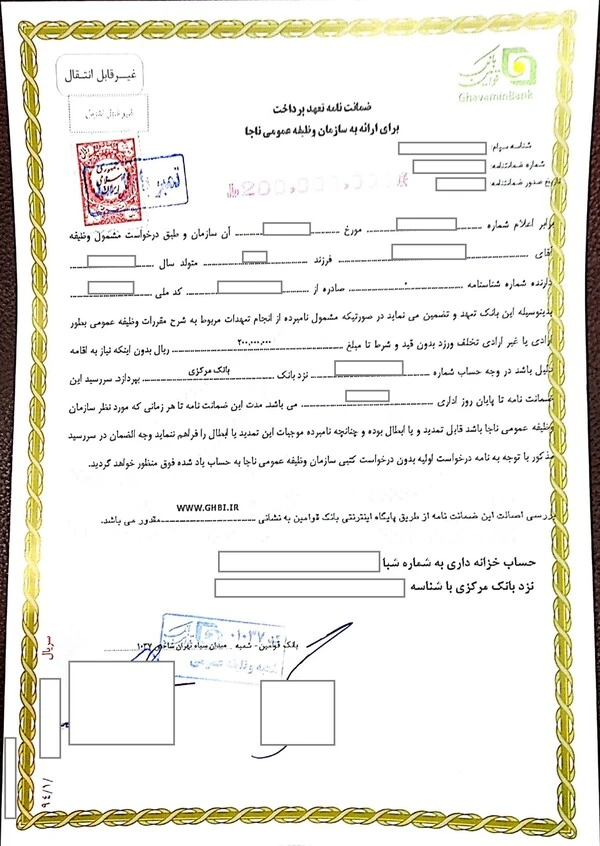 غیـر قابل انتقـال
بانک قوامین
GhavaminBank
ضمانت نامه تعهد پرداخت
برای ارائه به سازمان وظیفه عمومی ناجا
شناسه سپام:
شماره ضمانتنامه:
تاریخ صدور ضمانتنامه:
جمهوری اسلامی ایران
تمبر
200,000,000 ریال
برابر اعلام شماره مورخ آن سازمان و طبق درخواست مشمول وظیفه
آقای فرزند متولد سال
دارنده شماره شناسنامه صادره از کد ملی
بدینوسیله این بانک تعهد و تضمین می نماید در صورتیکه مشمول نامبرده از انجام تعهدات مربوط به شرح مقررات وظیفه عمومی بطور
ارادی یا غیر ارادی تخلف ورزد بدون قید و شرط تا مبلغ ۲۰۰,۰۰۰,۰۰۰ ریال بدون اینکه نیاز به اقامه
دلیل باشد در وجه حساب شماره نزد بانک بانک مرکزی بپردازد. سررسید این
ضمانت نامه تا پایان روز اداری می باشد. مدت این ضمانت نامه تا هر زمانی که مورد نظر سازمان
وظیفه عمومی ناجا باشد قابل تمدید و یا ابطال بوده و چنانچه نامبرده موجبات این تمدید یا ابطال را فراهم ننماید وجه الضمان در سررسید
مذکور با توجه به نامه درخواست اولیه بدون درخواست کتبی سازمان وظیفه عمومی ناجا به حساب یاد شده فوق منظور خواهد گردید.
بررسی اصالت این ضمانت نامه از طریق پایگاه اینترنتی بانک قوامین به نشانی WWW.GHBI.IR مقدور می باشد.
حساب خزانه داری به شماره شبا
نزد بانک مرکزی با شناسه
بانک قوامین - شعبه میدان سپاه تهران شاخص ۱۰۳۷
شعبه وظیفه عمومی
سریال
۹۴/۱/